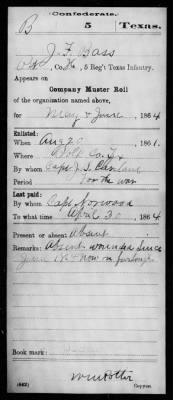 Confederate.
B 5 Texas.
J. F. Bass
Pvt, Co. , 5 Reg't Texas Infantry.
Appears on
Company Muster Roll
of the organization named above,
for May & June, 1864
Enlisted:
When Aug 20, 1861.
Where Polk Co. Tx
By whom Capt. J. S. Cleveland
Period For the war
Last paid:
By whom Capt Norwood
To what time April 30, 1864
Present or absent Absent
Remarks: Absent wounded since
June now on furlough
Book mark:
(642) Copyist.